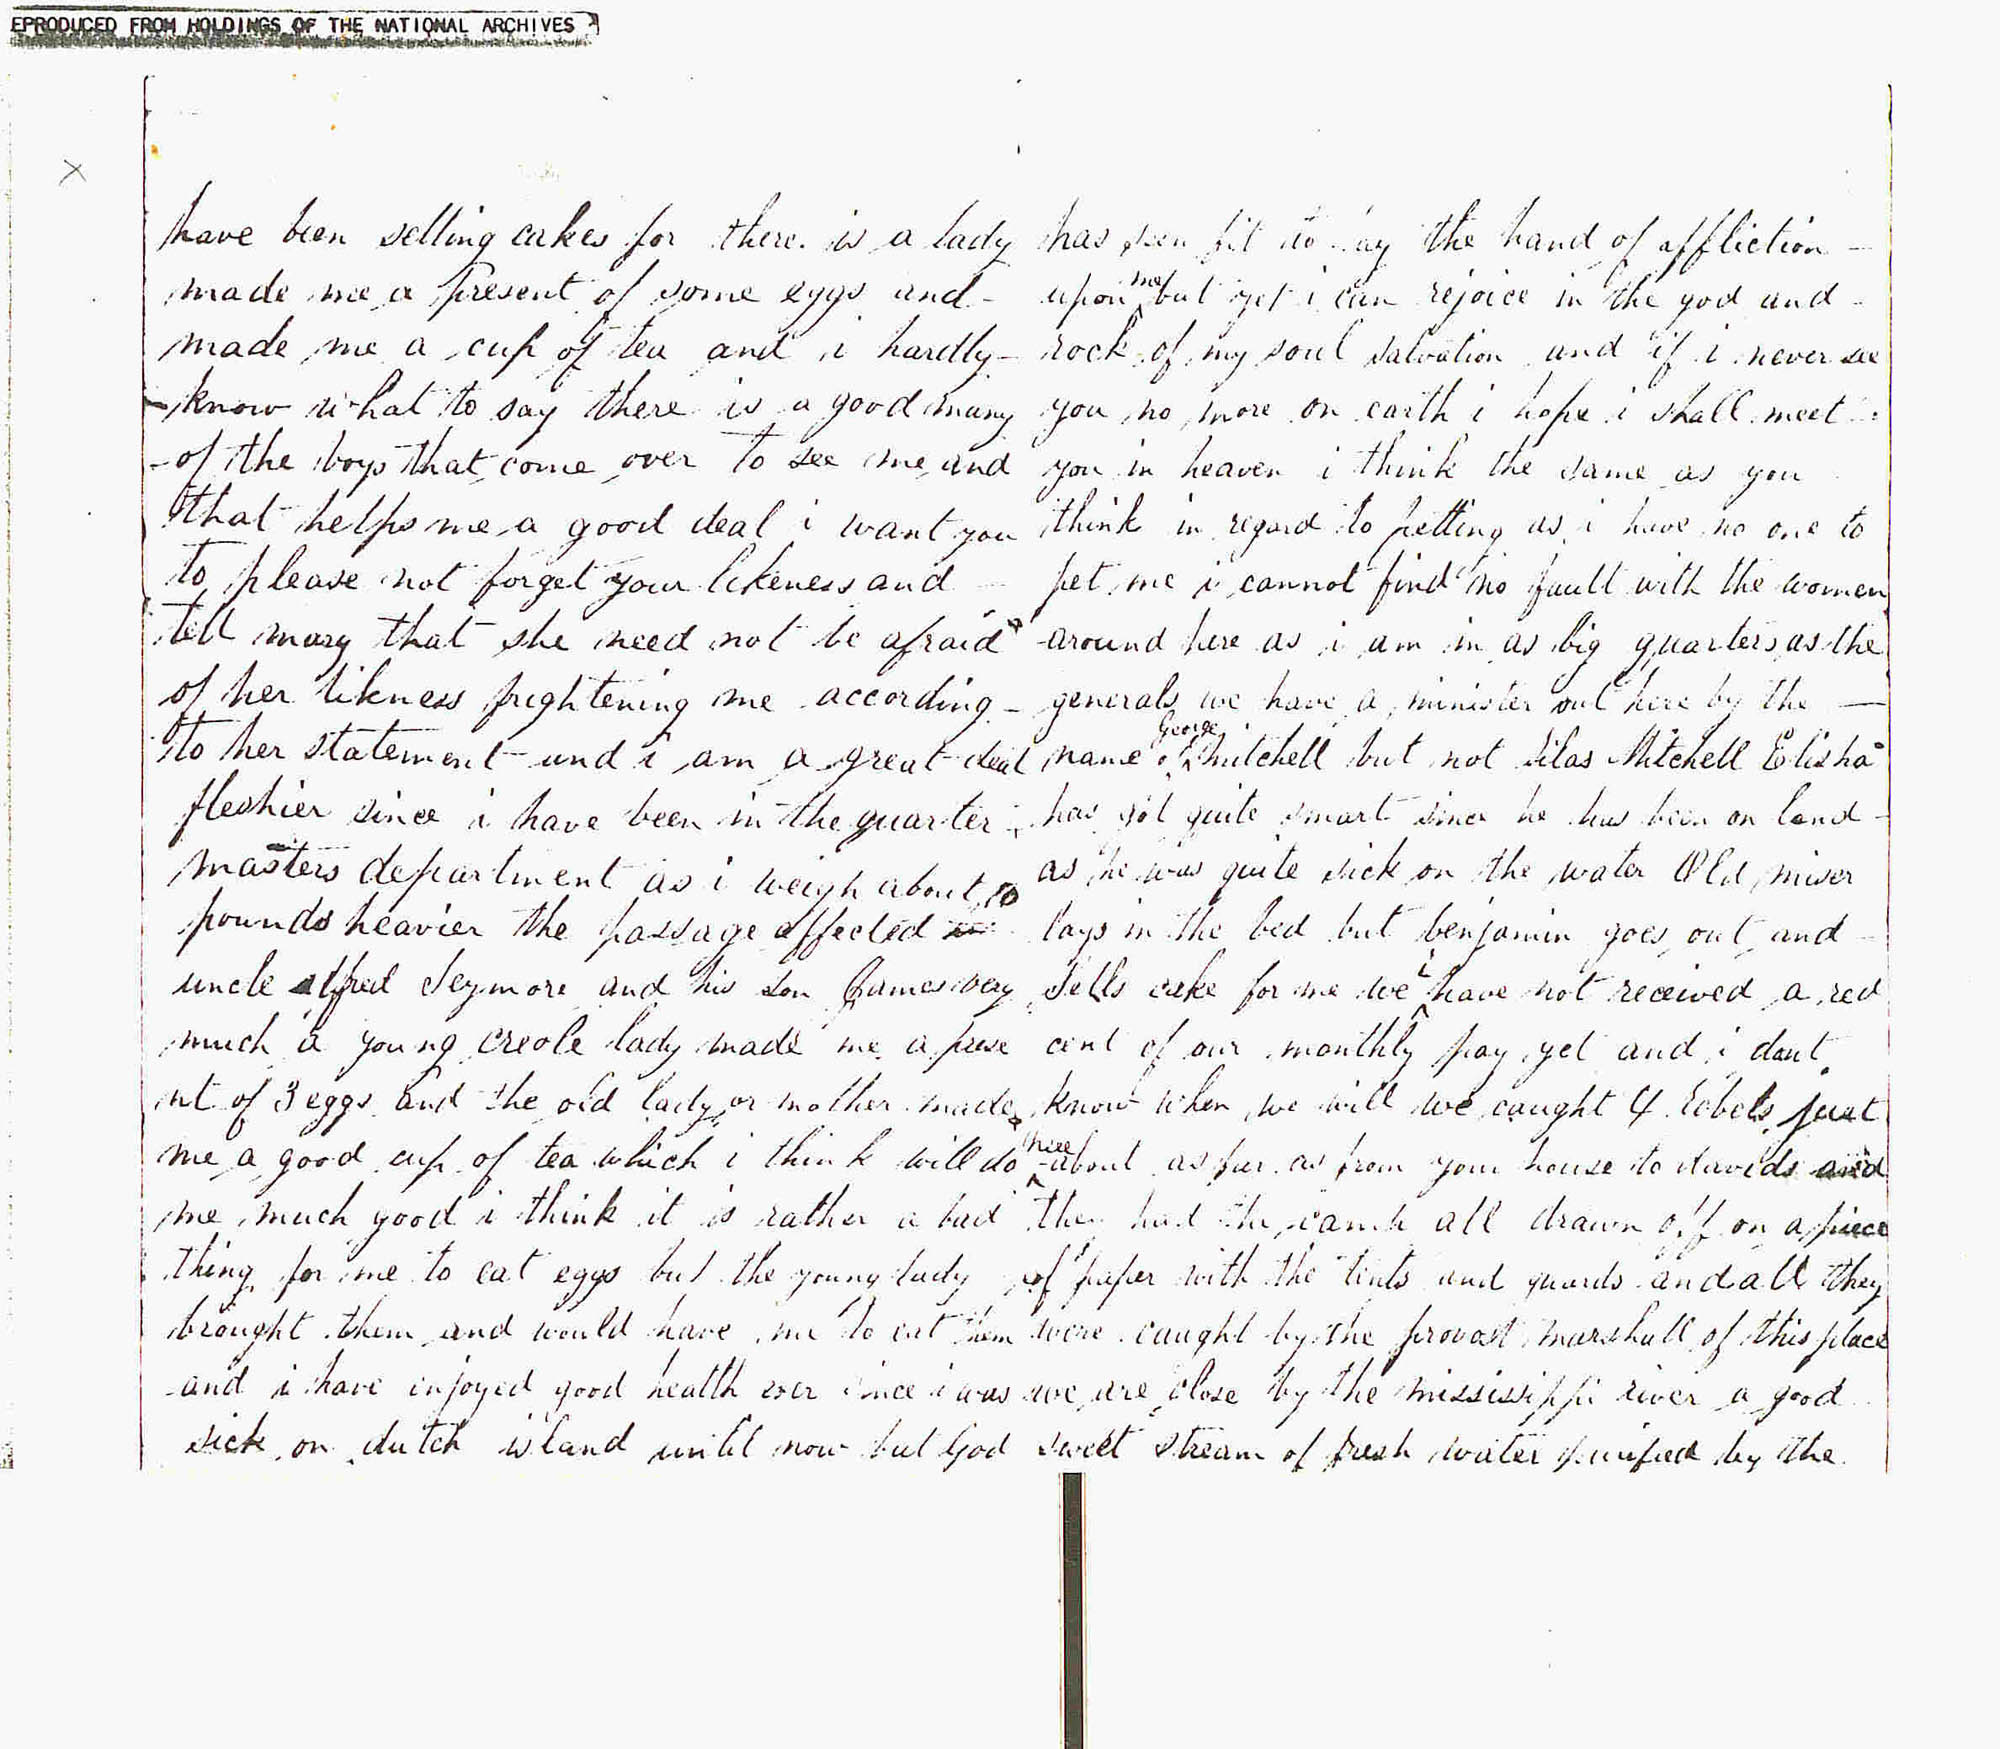 EPRODUCED FROM HOLDINGS OF THE NATIONAL ARCHIVES
have been selling cakes for there is a lady
made me a Present of some eggs and
made me a cup of tea and i hardly
know what to say there is a good many
of the boys that come over to see me and
that helps me a good deal i want you
to please not forget your likeness and
tell mary that she need not be afraid
of her likness frightening me according
to her statement and i am a great deal
fleshier since i have been in the quarter
masters department as i weigh about 10
pounds heavier the passage affected
uncle alfred Seymore and his son James very
much a young creole lady made me a prese
nt of 3 eggs and the old lady or mother made
me a good cup of tea which i think will do
me much good i think it is rather a bad
thing for me to eat eggs but the young lady
brought them and would have me to eat them
and i have injoyed good health ever since i was
sick on dutch island until now but God
has seen fit to lay the hand of affliction
upon me but yet i can rejoice in the god and
rock of my soul salvation and if i never see
you no more on earth i hope i shall meet
you in heaven i think the same as you
think in regard to petting as i have no one to
pet me i cannot find no fault with the women
around here as i am in as big quarters as the
generals we have a minister out here by the
name of George mitchell but not silas Mitchell Elisha
has got quite smart since he has been on land
as he was quite sick on the water Old miser
lays in the bed but benjamin goes out and
sells cake for me we have not received a red
cent of our monthly pay yet and i dont
know when we will we caught 4 Rebels just
about as fur as from your house to davids and
they had the camp all drawn off on a piece
of paper with the tents and guards and all they
were caught by the provost marshall of this place
we are close by the mississippi river a good
sweet stream of fresh water purified by the